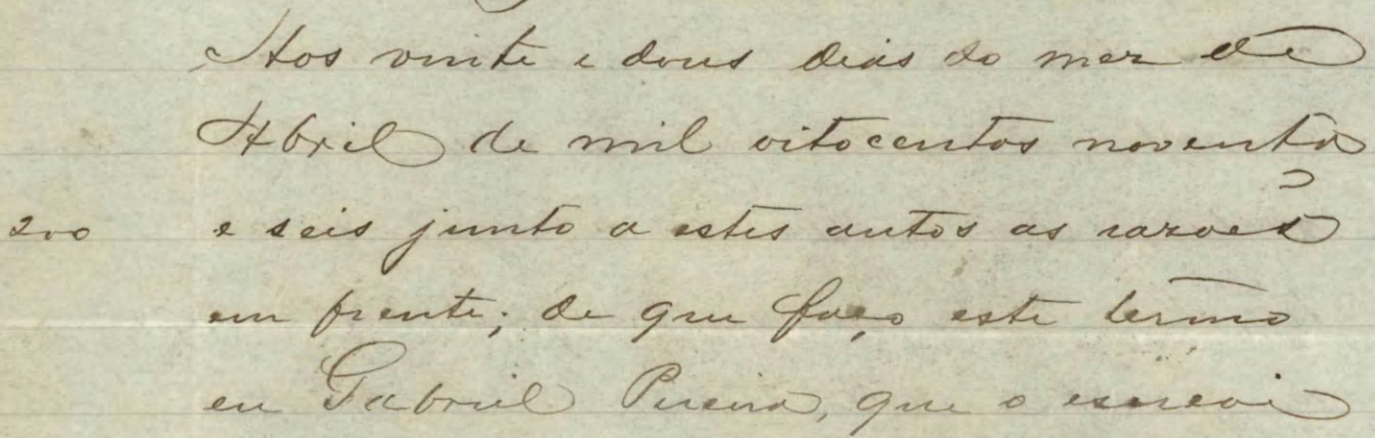 Aos vinte e dous dias do mez de
Abril de mil oitocentos noventa
200 e seis junto a estes autos as razoes
em frente; de que faço este termo
eu Gabriel Pereira, que o escrevi